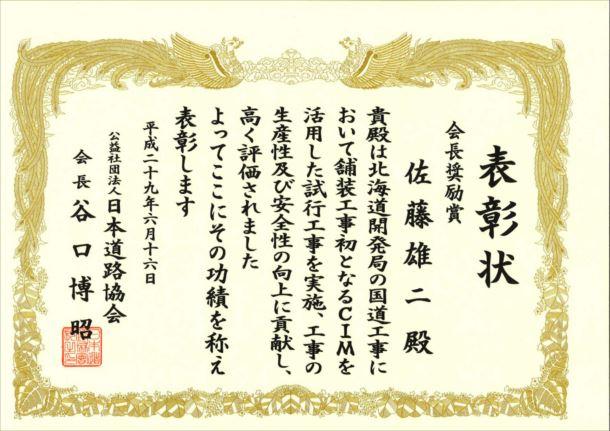 表彰状
会長奨励賞
佐藤雄二殿
貴殿は北海道開発局の国道工事に
おいて舗装工事初となるCIMを
活用した試行工事を実施、工事の
生産性及び安全性の向上に貢献し、
高く評価されました
よってここにその功績を称え
表彰します
平成二十九年六月十六日
公益社団法人日本道路協会
会長谷口博昭